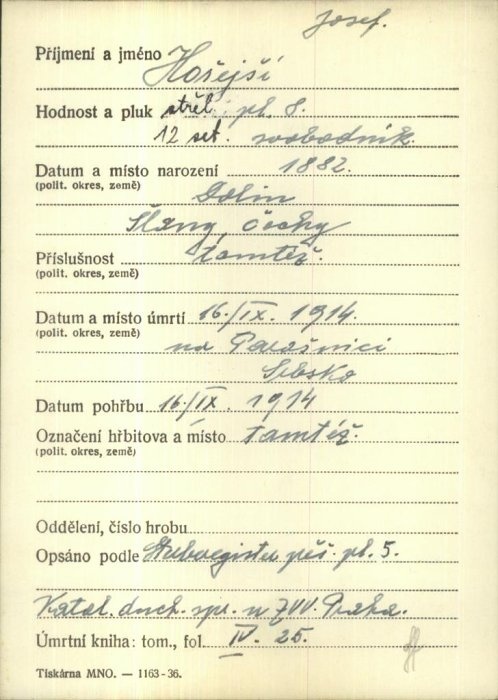 Josef.
Příjmení a jméno Hořejší
Hodnost a pluk střel. pl. 8.
12 set. svobodník.
Datum a místo narození 1882.
(polit. okres, země) Dolin
Slaný, Čechy
Příslušnost tamtéž.
(polit. okres, země)
Datum a místo úmrtí 16./IX. 1914.
(polit. okres, země)
na Parašnici
Srbsko
Datum pohřbu 16/IX. 1914
Označení hřbitova a místo tamtéž.
(polit. okres, země)
Oddělení, číslo hrobu
Opsáno podle Sterberegister pěš. pl. 5.
Katol. duch. spr. u ZVV. Praha.
Úmrtní kniha: tom., fol. IV. 25.
Tiskárna MNO. — 1163-36.